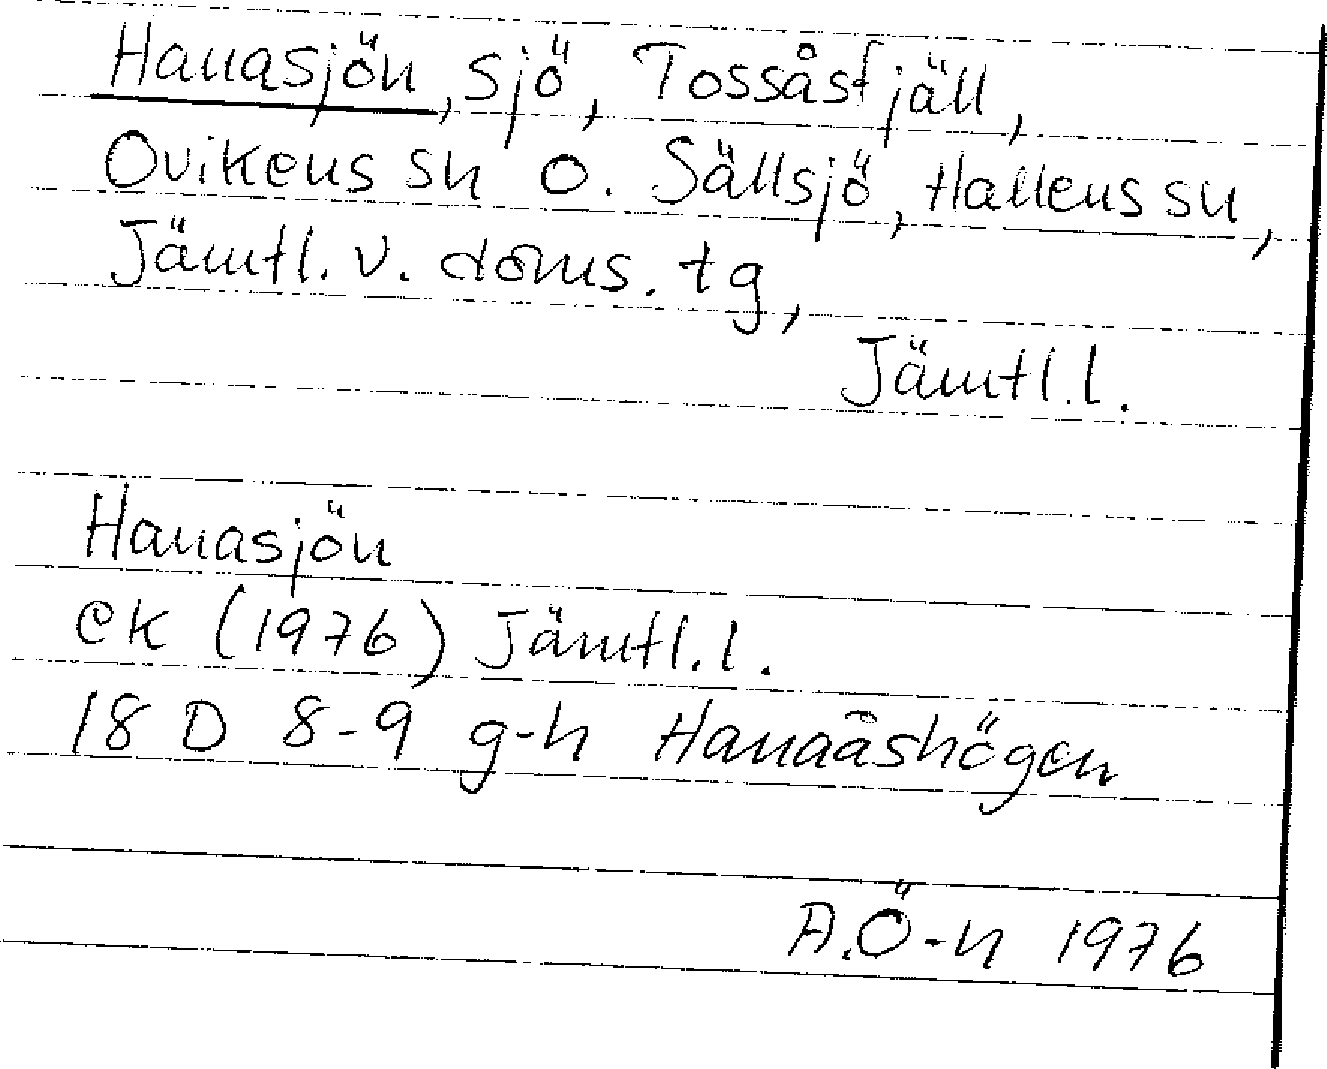 Hanasjön, sjö, Tossåsfjäll,
Ovikens sn o. Sällsjö, Hallens sn,
Jämtl. v. doms. tg,
Jämtl.l.
Hanasjön
ek (1976) Jämtl.l.
18 D 8-9 g-h Hanaåshögen
A.Ö-n 1976